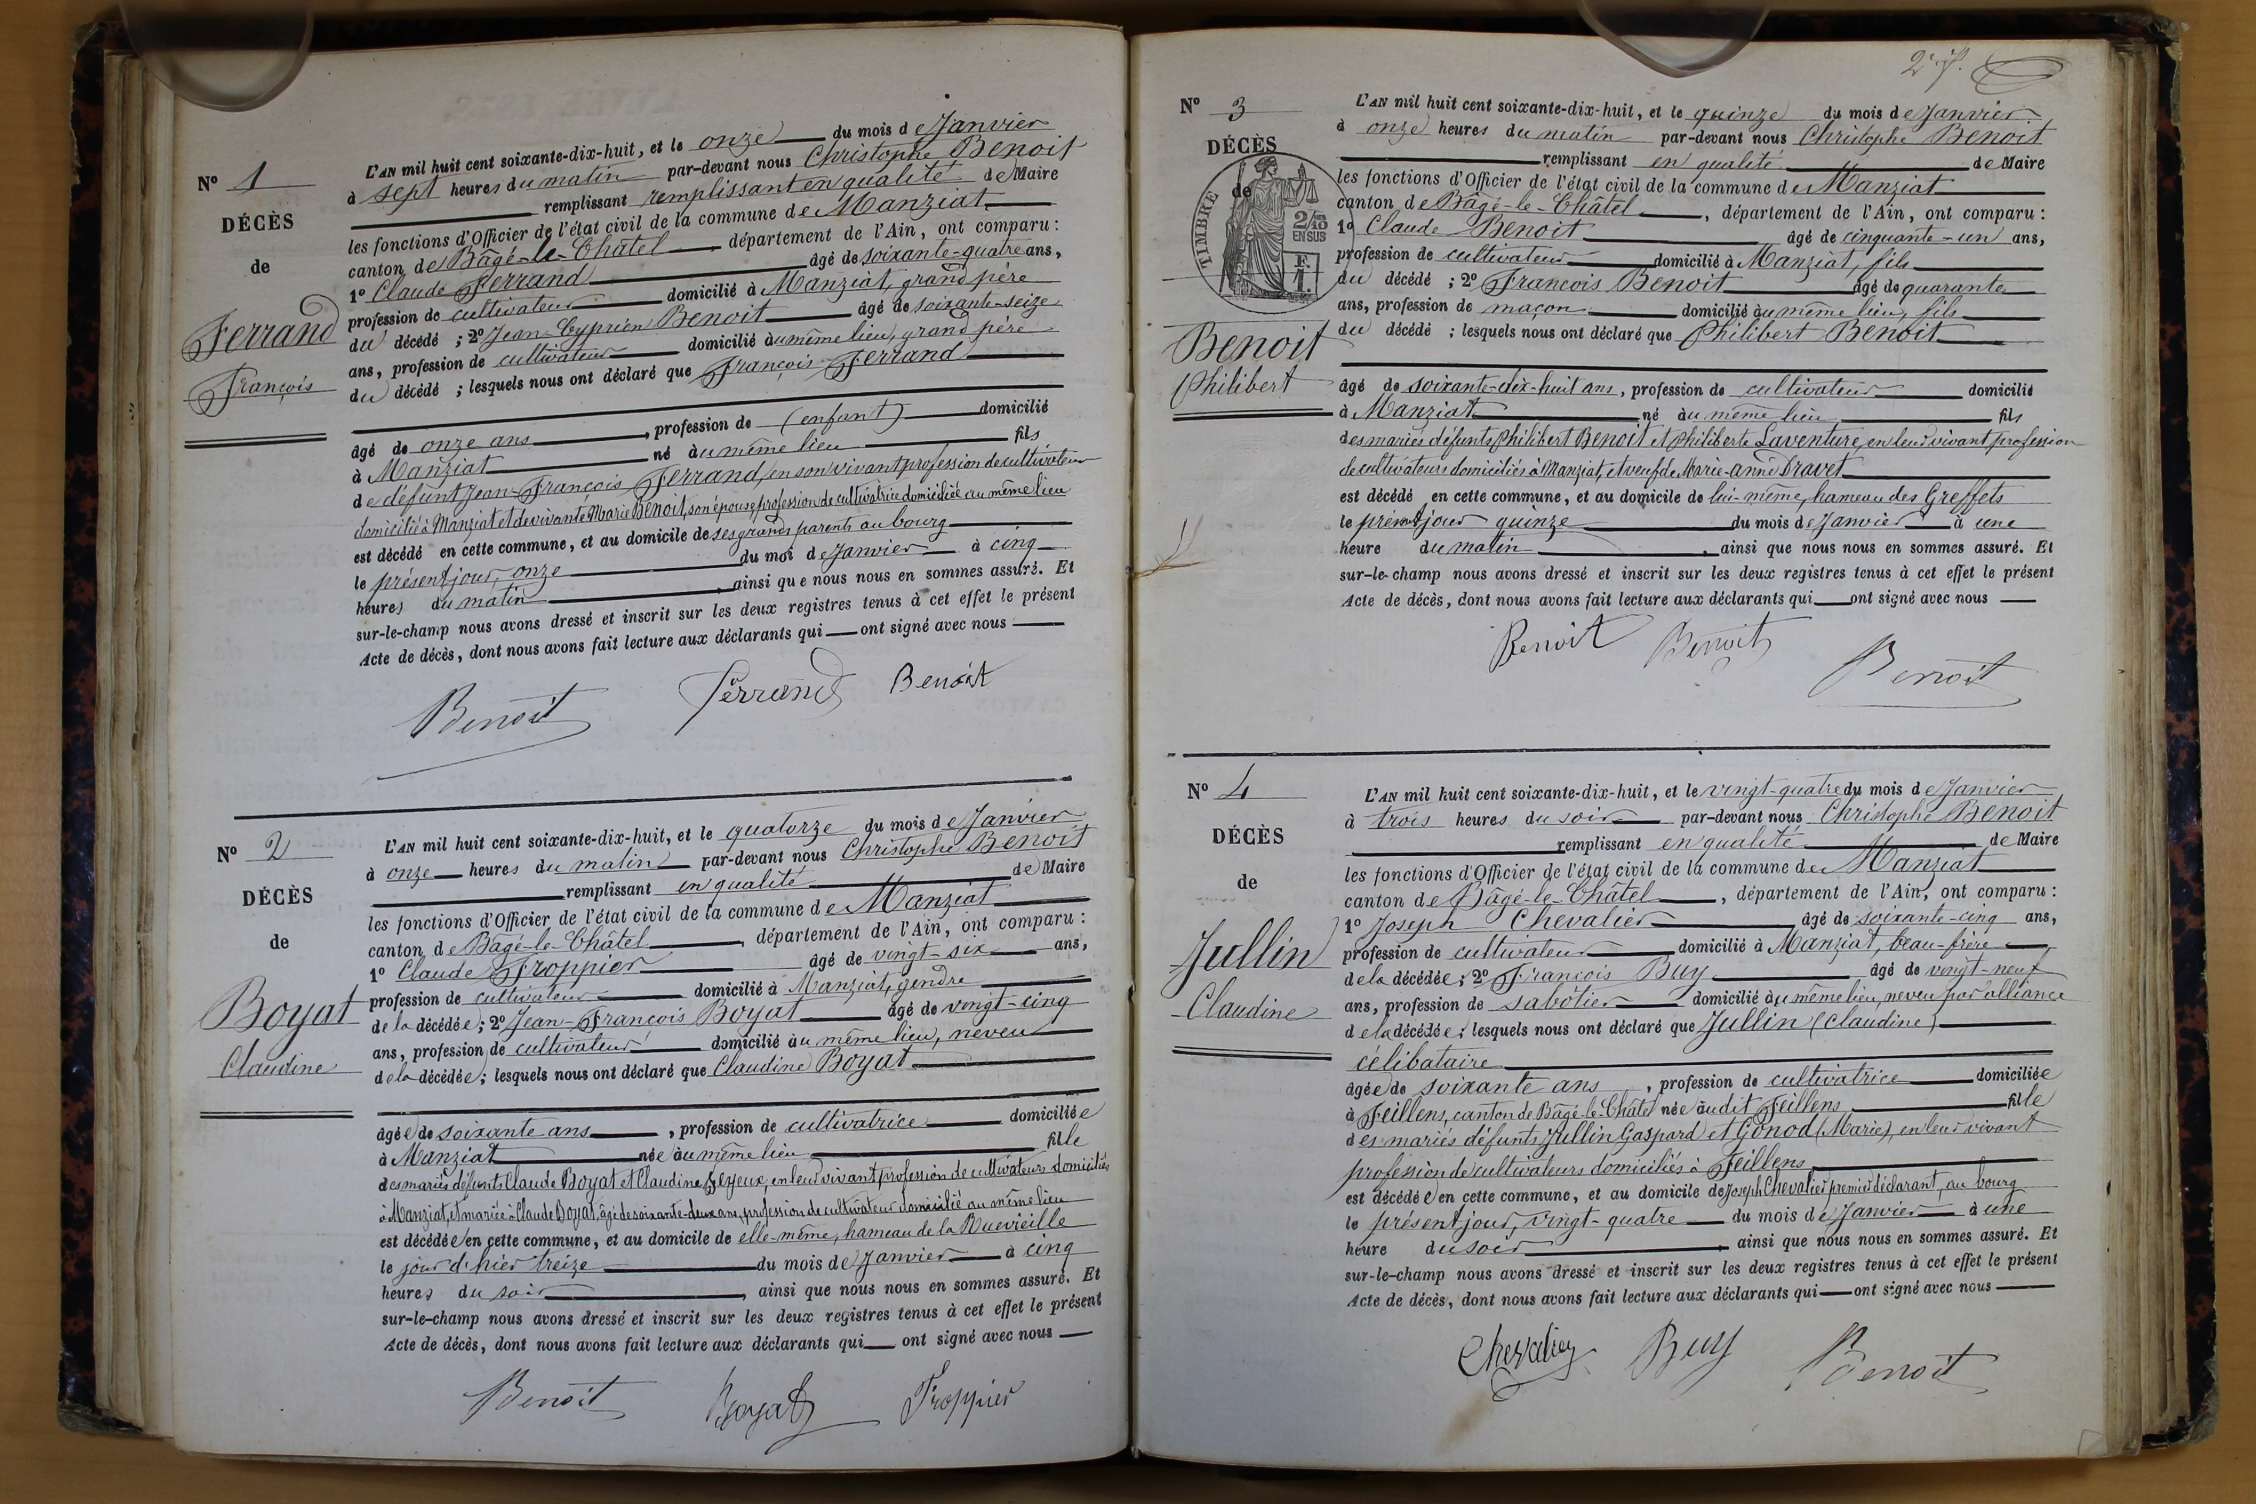 N° 1
DÉCÈS
de
Ferrand
François
L'AN mil huit cent soixante-dix-huit, et le onze du mois de Janvier
à sept heures du matin par-devant nous Christophe Benoit
remplissant remplissant en qualité de Maire
les fonctions d'Officier de l'état civil de la commune de Manziat
canton de Bâgé-le-Châtel département de l'Ain, ont comparu :
1° Claude Ferrand âgé de soixante-quatre ans,
profession de cultivateur domicilié à Manziat, grand père
du décédé ; 2° Jean-Cyprien Benoit âgé de soixante-seize
ans, profession de cultivateur domicilié au même lieu, grand père
du décédé ; lesquels nous ont déclaré que François Ferrand
âgé de onze ans, profession de (enfant) domicilié
à Manziat né au même lieu fils
de défunt Jean-François Ferrand, en son vivant profession de cultivateur
domicilié à Manziat et de vivante Marie Benoit, son épouse profession de cultivatrice domiciliée au même lieu
est décédé en cette commune, et au domicile de ses grands parents au bourg
le présent jour, onze du moi de Janvier à cinq
heures du matin, ainsi que nous nous en sommes assuré. Et
sur-le-champ nous avons dressé et inscrit sur les deux registres tenus à cet effet le présent
Acte de décès, dont nous avons fait lecture aux déclarants qui ont signé avec nous
Benoit Ferrand Benoit
N° 2
DÉCÈS
de
Boyat
Claudine
L'AN mil huit cent soixante-dix-huit, et le quatorze du mois de Janvier
à onze heures du matin par-devant nous Christophe Benoit
remplissant en qualité de Maire
les fonctions d'Officier de l'état civil de la commune de Manziat
canton de Bâgé-le-Châtel, département de l'Ain, ont comparu :
1° Claude Froppier âgé de vingt-six ans,
profession de cultivateur domicilié à Manziat, gendre
de la décédée ; 2° Jean-François Boyat âgé de vingt-cinq
ans, profession de cultivateur domicilié au même lieu, neveu
de la décédée ; lesquels nous ont déclaré que Claudine Boyat
âgée de soixante ans, profession de cultivatrice domiciliée
à Manziat née au même lieu fille
des mariés défunts Claude Boyat et Claudine en leur vivant profession de cultivateurs domiciliés
à Manziat, et mariée à Claude Boyat, âgé de soixante-deux ans, profession de cultivateur domicilié au même lieu
est décédée en cette commune, et au domicile de elle-même, hameau de la Ruevieille
le jour d'hier treize du mois de Janvier à cinq
heures du soir, ainsi que nous nous en sommes assuré. Et
sur-le-champ nous avons dressé et inscrit sur les deux registres tenus à cet effet le présent
Acte de décès, dont nous avons fait lecture aux déclarants qui ont signé avec nous
Benoit Boyat Froppier
2e f.
N° 3
DÉCÈS
de
TIMBRE
2/10
EN SUS
F.
1.
Benoit
Philibert
L'AN mil huit cent soixante-dix-huit, et le quinze du mois de Janvier
à onze heures du matin par-devant nous Christophe Benoit
remplissant en qualité de Maire
les fonctions d'Officier de l'état civil de la commune de Manziat
canton de Bâgé-le-Châtel, département de l'Ain, ont comparu :
1° Claude Benoit âgé de cinquante-un ans,
profession de cultivateur domicilié à Manziat, fils
du décédé ; 2° François Benoit âgé de quarante
ans, profession de maçon domicilié au même lieu, fils
du décédé ; lesquels nous ont déclaré que Philibert Benoit
âgé de soixante-dix-huit ans, profession de cultivateur domicilié
à Manziat né au même lieu fils
des mariés défunts Philibert Benoit et Philiberte Laventure, en leur vivant profession
de cultivateurs domiciliés à Manziat, et veuf de Marie-Anne Dravet
est décédé en cette commune, et au domicile de lui-même, hameau des Greffets
le présent jour quinze du mois de Janvier à une
heure du matin, ainsi que nous nous en sommes assuré. Et
sur-le-champ nous avons dressé et inscrit sur les deux registres tenus à cet effet le présent
Acte de décès, dont nous avons fait lecture aux déclarants qui ont signé avec nous
Benoit Benoit Benoit
N° 4
DÉCÈS
de
Jullin
Claudine
L'AN mil huit cent soixante-dix-huit, et le vingt-quatre du mois de Janvier
à trois heures du soir par-devant nous Christophe Benoit
remplissant en qualité de Maire
les fonctions d'Officier de l'état civil de la commune de Manziat
canton de Bâgé-le-Châtel, département de l'Ain, ont comparu :
1° Joseph Chevalier âgé de soixante-cinq ans,
profession de cultivateur domicilié à Manziat, beau-frère
de la décédée ; 2° François Buy âgé de vingt-neuf
ans, profession de sabotier domicilié au même lieu, neveu par alliance
de la décédée ; lesquels nous ont déclaré que Jullin (Claudine)
célibataire
âgée de soixante ans, profession de cultivatrice domiciliée
à Feillens, canton de Bâgé-le-Châtel née audit Feillens fille
des mariés défunts Jullin Gaspard et Gonod (Marie), en leur vivant
profession de cultivateurs domiciliés à Feillens
est décédée en cette commune, et au domicile de Joseph Chevalier premier déclarant, au bourg
le présent jour, vingt-quatre du mois de Janvier à une
heure du soir, ainsi que nous nous en sommes assuré. Et
sur-le-champ nous avons dressé et inscrit sur les deux registres tenus à cet effet le présent
Acte de décès, dont nous avons fait lecture aux déclarants qui ont signé avec nous
Chevalier Buy Benoit